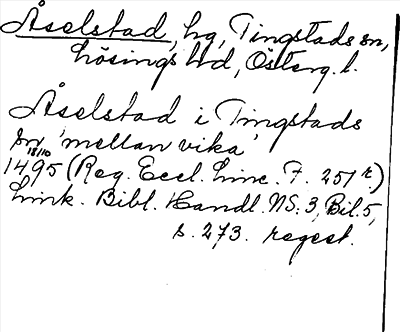 Åselstad, hg, Tingstads sn,
Lösings hd, Österg. l.
Åselstad i Tingstads
sn 'mellan vika'
18/10
1495 (Reg. Eccl. Linc. F. 251 r)
Link. Bibl. Handl. NS. 3, Bil. 5,
s. 273. regest.